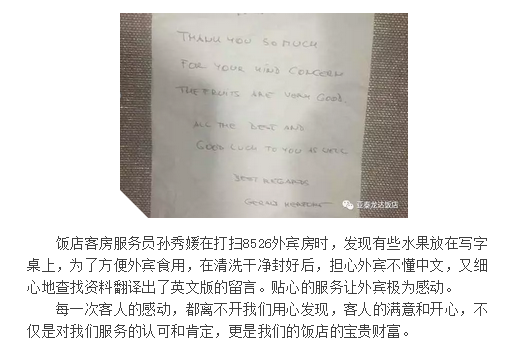 THANK YOU SO MUCH
FOR YOUR KIND CONCERN
THE FRUITS ARE VERY GOOD.
ALL THE BEST AND
GOOD LUCK TO YOU AS WELL
BEST REGARDS
GERALD
亚泰龙达饭店
饭店客房服务员孙秀媛在打扫8526外宾房时，发现有些水果放在写字
桌上，为了方便外宾食用，在清洗干净封好后，担心外宾不懂中文，又细
心地查找资料翻译出了英文版的留言。贴心的服务让外宾极为感动。
每一次客人的感动，都离不开我们用心发现，客人的满意和开心，不
仅是对我们服务的认可和肯定，更是我们的饭店的宝贵财富。